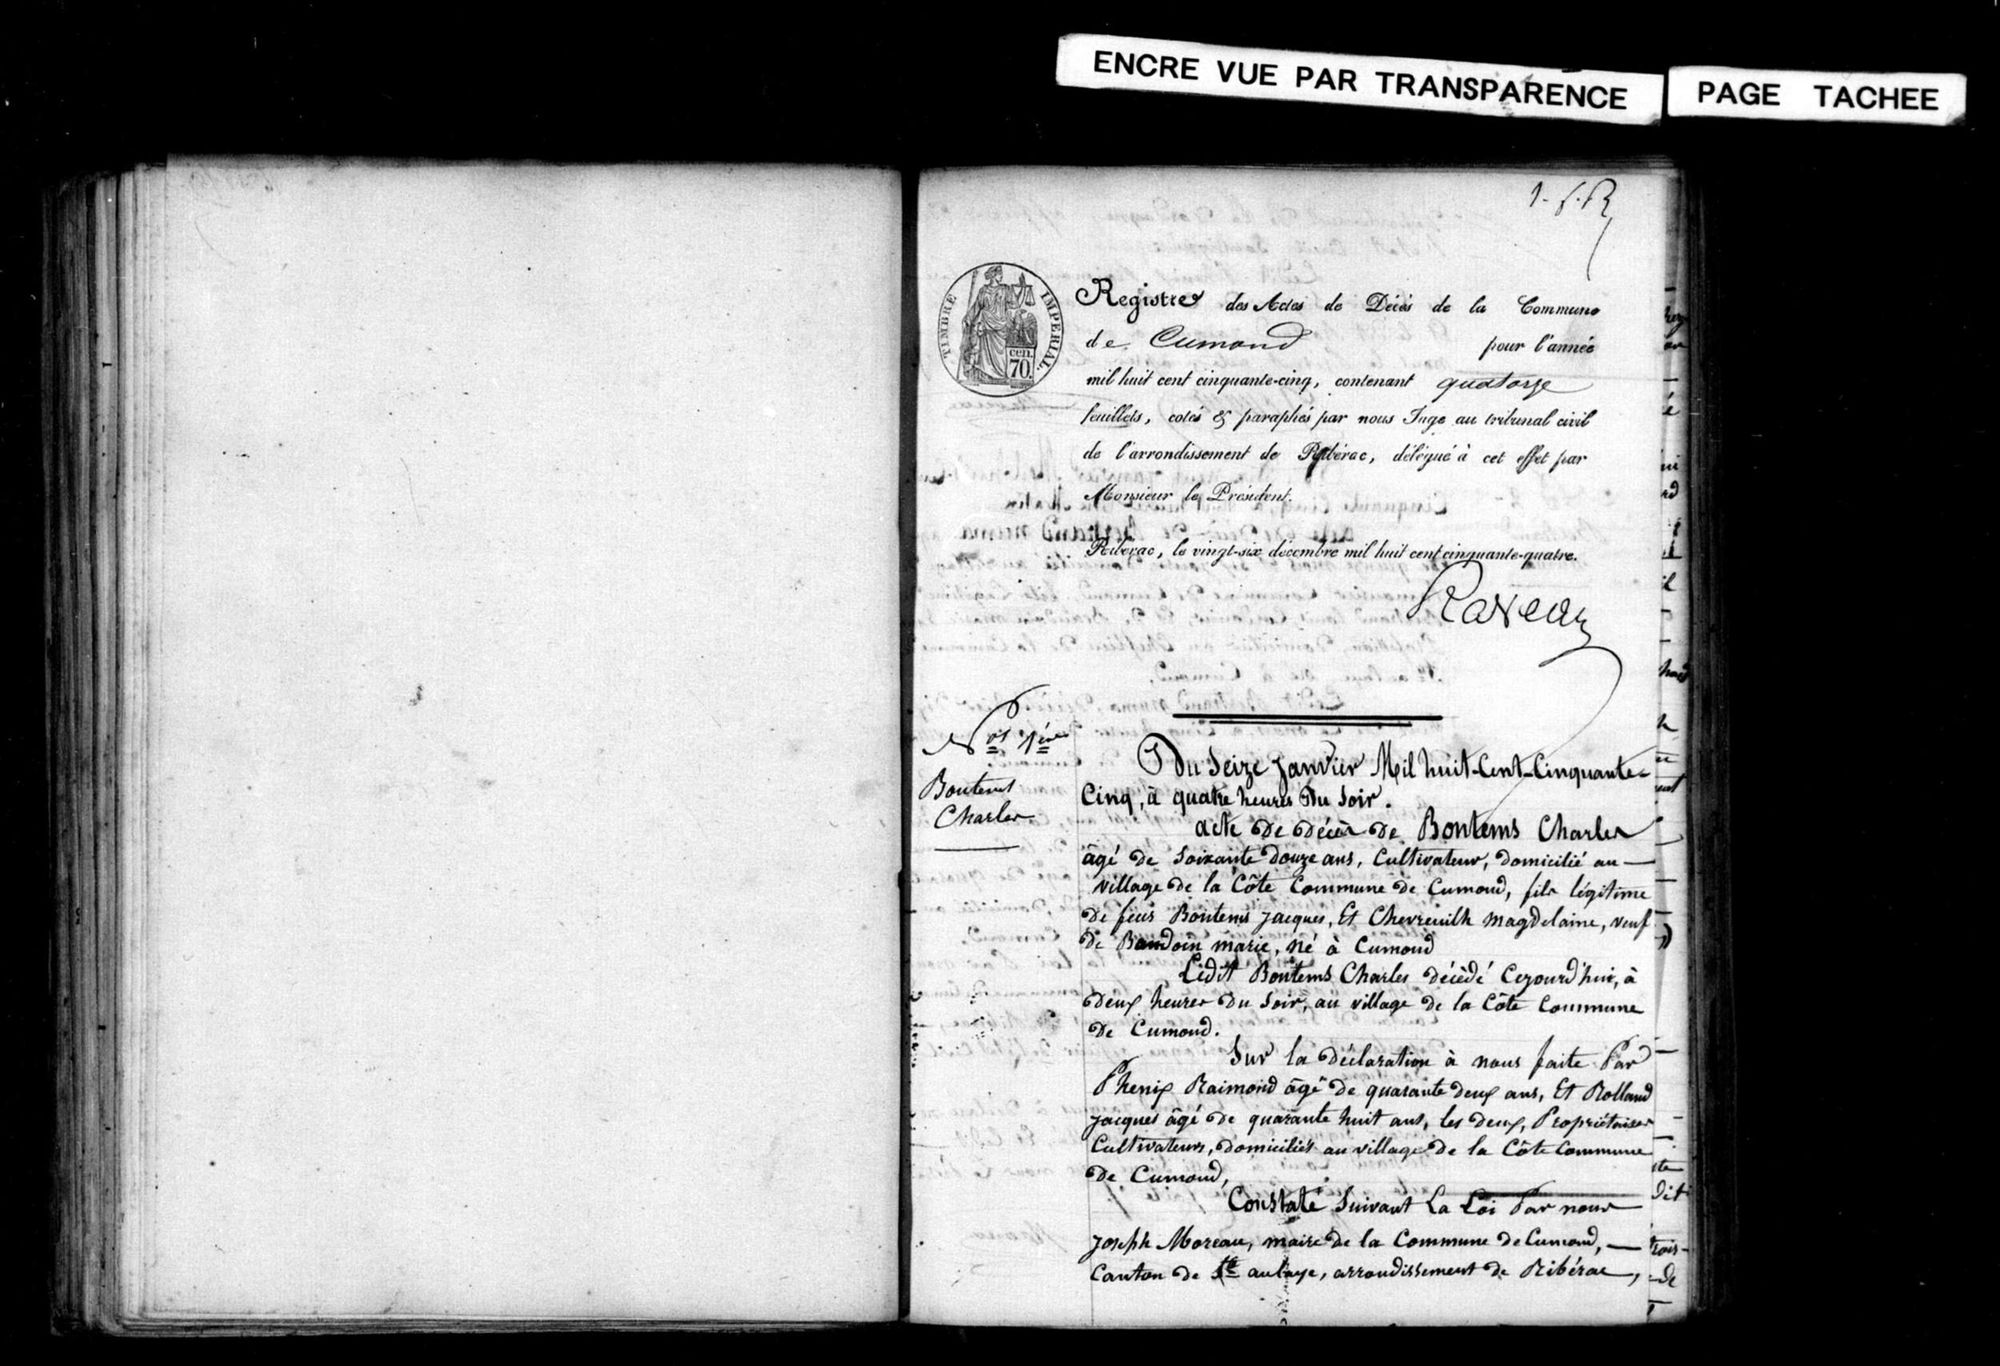 ENCRE VUE PAR TRANSPARENCE
PAGE TACHEE
TIMBRE IMPERIAL
cen.
70.
Registre des Actes de Décès de la Commune
de Cumond pour l'année
mil huit cent cinquante-cinq, contenant quatorze
feuillets, cotés & paraphés par nous Juge au tribunal civil
de l'arrondissement de Ribérac, délégué à cet effet par
Monsieur le Président.
Riberac, le vingt-six décembre mil huit cent cinquante-quatre.
Bontems
Charles
Du Seize Janvier Mil huit-Cent-Cinquante-
Cinq, à quatre heures Du Soir.
acte De décès de Bontems Charles
âgé de soixante douze ans, Cultivateur, domicilié au
village de la Côte Commune de Cumond, fils légitime
de feus Bontems Jacques, Et Chevreuilh Magdelaine, veuf
de Baudoin marie, né à Cumond
Ledit Bontems Charles décédé Cejourd'hui, à
deux heures du Soir, au village de la Côte Commune
de Cumond.
Sur la déclaration à nous faite Par
Phenix Raimond âgé de quarante deux ans, Et Rolland
Jacques âgé de quarante huit ans, les deux, Propriétaires
Cultivateurs, domiciliés au village de la Côte Commune
de Cumond,
Constaté Suivant La Loi Par nous
Joseph Moreau, maire de la Commune de Cumond,
Canton de Ste aulaye, arrondissement de Ribérac,